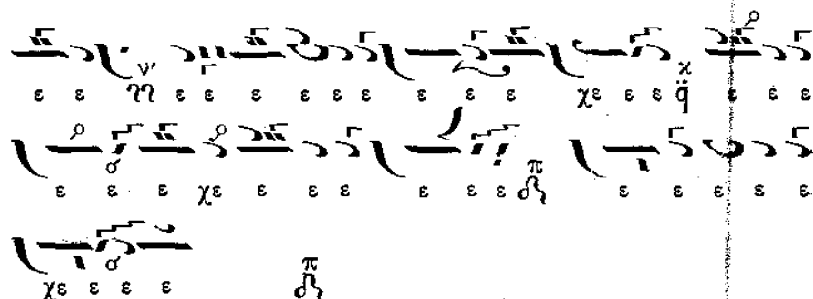 ε ε ν' ε ε ε ε ε ε ε ε ε χε ε ε κ q̈ ε ε ε
ε ε ε χε ε ε ε ε ε ε π ε ε ε ε ε
χε ε ε ε π